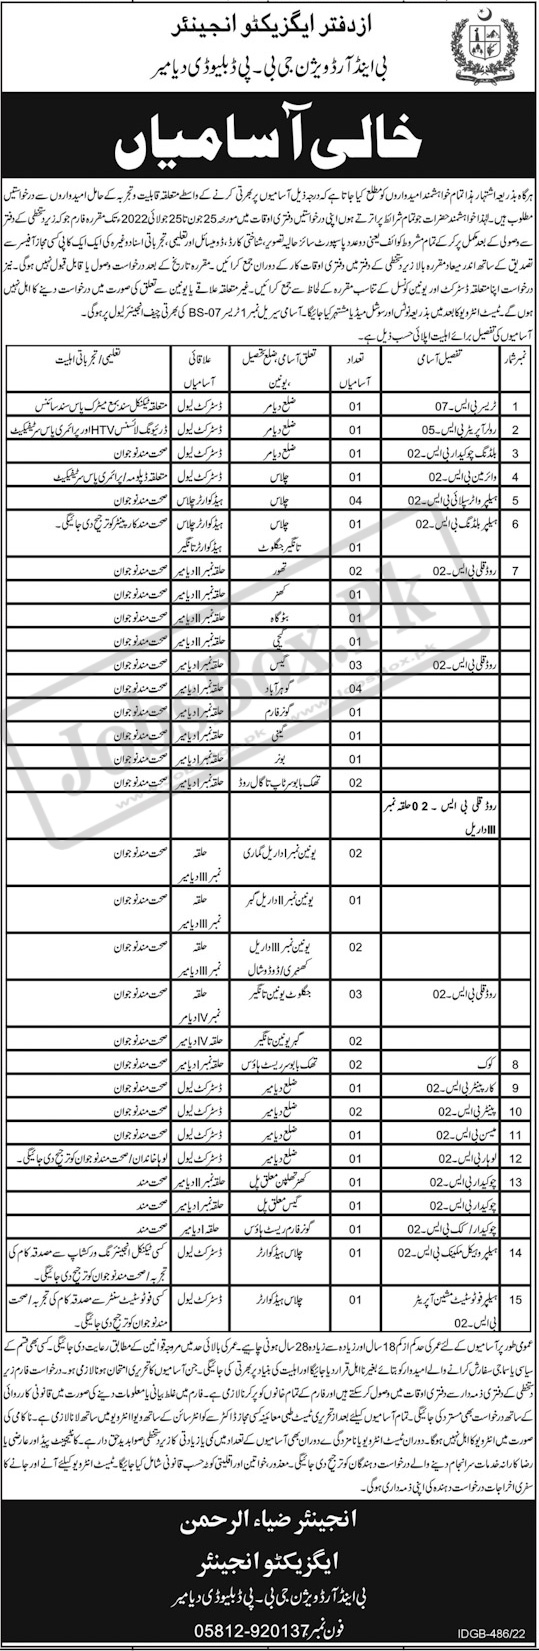 از دفتر ایگزیکٹو انجینئر
بی اینڈ آر ڈویژن جی بی۔ پی ڈبلیو ڈی دیامیر
خالی آسامیاں
ہرگاہ بذریعہ اشتہار ہذا تمام خواہشمند امیدواروں کو مطلع کیا جاتا ہے کہ درجہ ذیل آسامیوں پر بھرتی کرنے کے واسطے متعلقہ قابلیت و تجربہ کے حامل امیدواروں سے درخواستیں
مطلوب ہیں۔ لہٰذا خواہشمند حضرات جو تمام شرائط پر اترتے ہوں اپنی درخواستیں دفتری اوقات میں مورخہ 25 جون تا 25 جولائی 2022 تک مقررہ فارم جو کہ زیر دستخطی کے دفتر
سے وصولی کے بعد مکمل پر کر کے تمام مشروط کوائف یعنی دو عدد پاسپورٹ سائز حالیہ تصویر، شناختی کارڈ، ڈومیسائل اور تعلیمی، تجرباتی اسناد وغیرہ کی ایک ایک کاپی کسی مجاز آفیسر سے
تصدیق کے ساتھ اندر میعاد مقررہ بالا زیر دستخطی کے دفتر میں دفتری اوقات کار کے دوران جمع کرائیں۔ مقررہ تاریخ کے بعد درخواست وصول یا قابل قبول نہیں ہوگی۔ نیز
درخواست اپنا متعلقہ ڈسٹرکٹ اور یونین کونسل کے تناسب مقررہ کے لحاظ سے جمع کرائیں۔ غیر متعلقہ علاقے یا یونین سے تعلق کی صورت میں درخواست دینے کا اہل نہیں
ہوں گے۔ ٹیسٹ انٹرویو کا بعد میں بذریعہ نوٹس اور سوشل میڈیا مشتہر کیا جائیگا۔ آسامی سیریل نمبر 1 ٹریسر BS-07 کی بھرتی چیف انجینئر لیول پر ہوگی۔
آسامیوں کی تفصیل برائے اہلیت اپلائی حسب ذیل ہے۔
نمبر شمار تفصیل آسامی تعداد آسامیاں تعلق آسامی، ضلع تحصیل، یونین علاقائی آسامیاں تعلیمی/ تجرباتی اہلیت
1 ٹریسر بی ایس۔07 01 ضلع دیامر ڈسٹرکٹ لیول متعلقہ ٹیکنکل سند بمع میٹرک پاس سند سائنس
2 رولر آپریٹر بی ایس۔05 01 ضلع دیامر ڈسٹرکٹ لیول ڈرائیونگ لائسنس HTV اور پرائمری پاس سرٹیفکیٹ
3 بلڈنگ چوکیدار بی ایس۔02 01 ضلع دیامر ڈسٹرکٹ لیول صحت مند نوجوان
4 وائرمین بی ایس۔02 01 چلاس ڈسٹرکٹ لیول متعلقہ ڈپلومہ/ پرائمری پاس سرٹیفکیٹ
5 ہیلپر واٹر سپلائی بی ایس۔02 04 چلاس ہیڈکوارٹر چلاس صحت مند نوجوان
6 ہیلپر بلڈنگ بی ایس۔02 01 چلاس ہیڈکوارٹر چلاس صحت مند کارپینٹر کو ترجیح دی جائیگی۔
01 تانگیر جگلوٹ ہیڈکوارٹر تانگیر
7 روڈ قلی بی ایس۔02 02 تھور حلقہ نمبر II دیامیر صحت مند نوجوان
01 کھنر حلقہ نمبر II دیامیر صحت مند نوجوان
01 بٹوگاہ حلقہ نمبر II دیامیر صحت مند نوجوان
01 گیچی حلقہ نمبر II دیامیر صحت مند نوجوان
روڈ قلی بی ایس۔02 03 گیس حلقہ نمبر I دیامیر صحت مند نوجوان
04 گوہر آباد حلقہ نمبر I دیامیر صحت مند نوجوان
01 گونر فارم حلقہ نمبر I دیامیر صحت مند نوجوان
01 حلقہ نمبر I دیامیر صحت مند نوجوان
01 بونر حلقہ نمبر I دیامیر صحت مند نوجوان
02 تھک بابوسر ٹاپ تا گال روڈ حلقہ نمبر I دیامیر صحت مند نوجوان
روڈ قلی بی ایس ۔ 02 حلقہ نمبر III داریل
02 یونین نمبر I داریل گماری حلقہ نمبر III دیامیر صحت مند نوجوان
01 یونین نمبر II داریل گبر حلقہ نمبر III دیامیر صحت مند نوجوان
02 یونین نمبر III داریل کھنبری/ ڈوڈوشال حلقہ نمبر III دیامیر صحت مند نوجوان
روڈ قلی بی ایس۔02 03 جگلوٹ یونین تانگیر حلقہ نمبر IV دیامر صحت مند نوجوان
02 گبر یونین تانگیر حلقہ IV دیامیر صحت مند نوجوان
8 کوک 02 تھک بابوسر ریسٹ ہاؤس حلقہ نمبر I دیامیر صحت مند نوجوان
9 کارپینٹر بی ایس۔02 01 ضلع دیامیر ڈسٹرکٹ لیول صحت مند نوجوان
10 پینٹر بی ایس۔02 02 ضلع دیامیر ڈسٹرکٹ لیول صحت مند نوجوان
11 میسن بی ایس۔02 01 ضلع دیامیر ڈسٹرکٹ لیول صحت مند نوجوان
12 لوہار بی ایس۔02 01 ضلع دیامیر ڈسٹرکٹ لیول لوہا خاندان/ صحت مند نوجوان کو ترجیح دی جائیگی۔
13 چوکیدار بی ایس۔02 01 کھنر تھلپن معلق پل حلقہ نمبر II دیامیر صحت مند
چوکیدار بی ایس۔02 01 گیس معلق پل حلقہ نمبر I دیامیر صحت مند
چوکیدار/ کک بی ایس۔02 01 گونر فارم ریسٹ ہاؤس حلقہ I دیامیر صحت مند
14 ہیلپر وہیکل مکینک بی ایس۔02 01 چلاس ہیڈکوارٹر ڈسٹرکٹ لیول کسی ٹیکنکل انجینئرنگ ورکشاپ سے مصدقہ کام کی تجربہ/ صحت مند نوجوان کو ترجیح دی جائیگی۔
15 ہیلپر فوٹوسٹیٹ مشین آپریٹر بی ایس۔02 01 چلاس ہیڈکوارٹر ڈسٹرکٹ لیول کسی فوٹوسٹیٹ سنٹر سے مصدقہ کام کی تجربہ/ صحت مند نوجوان کو ترجیح دی جائیگی۔
عمومی طور پر آسامیوں کے لئے عمر کی حد کم از کم 18 سال اور زیادہ سے زیادہ 28 سال ہونی چاہیے۔ عمر کی بالائی حد میں مروجہ قوانین کے مطابق رعایت دی جائیگی۔ کسی بھی قسم کے
سیاسی یا سماجی سفارش کرانے والے امیدوار کو بتائے بغیر نااہل قرار دیا جائیگا اور اہلیت کی بنیاد پر بھرتی کی جائیگی۔ جن آسامیوں کا تحریری امتحان ہونا لازمی ہو۔ درخواست فارم زیر
دستخطی کے دفتری ذمہ دار سے دفتری اوقات میں وصول کر سکتے ہیں اور فارم کے تمام خانوں کو پر کرنا لازمی ہے۔ فارم میں غلط بیانی یا معلومات دینے کی صورت میں قانونی کارروائی
کے ساتھ درخواست بھی مسترد کی جائیگی۔ تمام آسامیوں کیلئے بعد از تحریری ٹیسٹ طبی معائنہ کی مجاز ڈاکٹر سے کوائنٹر سائن کے ساتھ دیو انٹرویو میں ساتھ لانا لازمی ہے۔ ناکامی کی
صورت میں انٹرویو کا اہل نہیں ہوگا۔ دوران ٹیسٹ انٹرویو یا نامزدگی کے دوران بھی آسامیوں کے تعداد میں کمی یا زیادتی کا زیر دستخطی صوابدید حق دار ہے۔ کانٹیجنٹ پیڈ اور عارضی یا
رضا کارانہ خدمات سرانجام دینے والے درخواست دہندگان کو ترجیح دی جائیگی۔ معذور، خواتین اور اقلیتی کوٹہ حسب قانونی شامل کیا جائیگا۔ ٹیسٹ انٹرویو کیلئے آنے اور جانے کا
سفری اخراجات درخواست دہندہ کی اپنی ذمہ داری ہوگی۔
انجینئر ضیاء الرحمن
ایگزیکٹو انجینئر
بی اینڈ آر ڈویژن جی بی۔ پی ڈبلیو ڈی دیامیر
فون نمبر 05812-920137
IDGB-486/22
JobsBox.Pk
www.jobsbox.pk